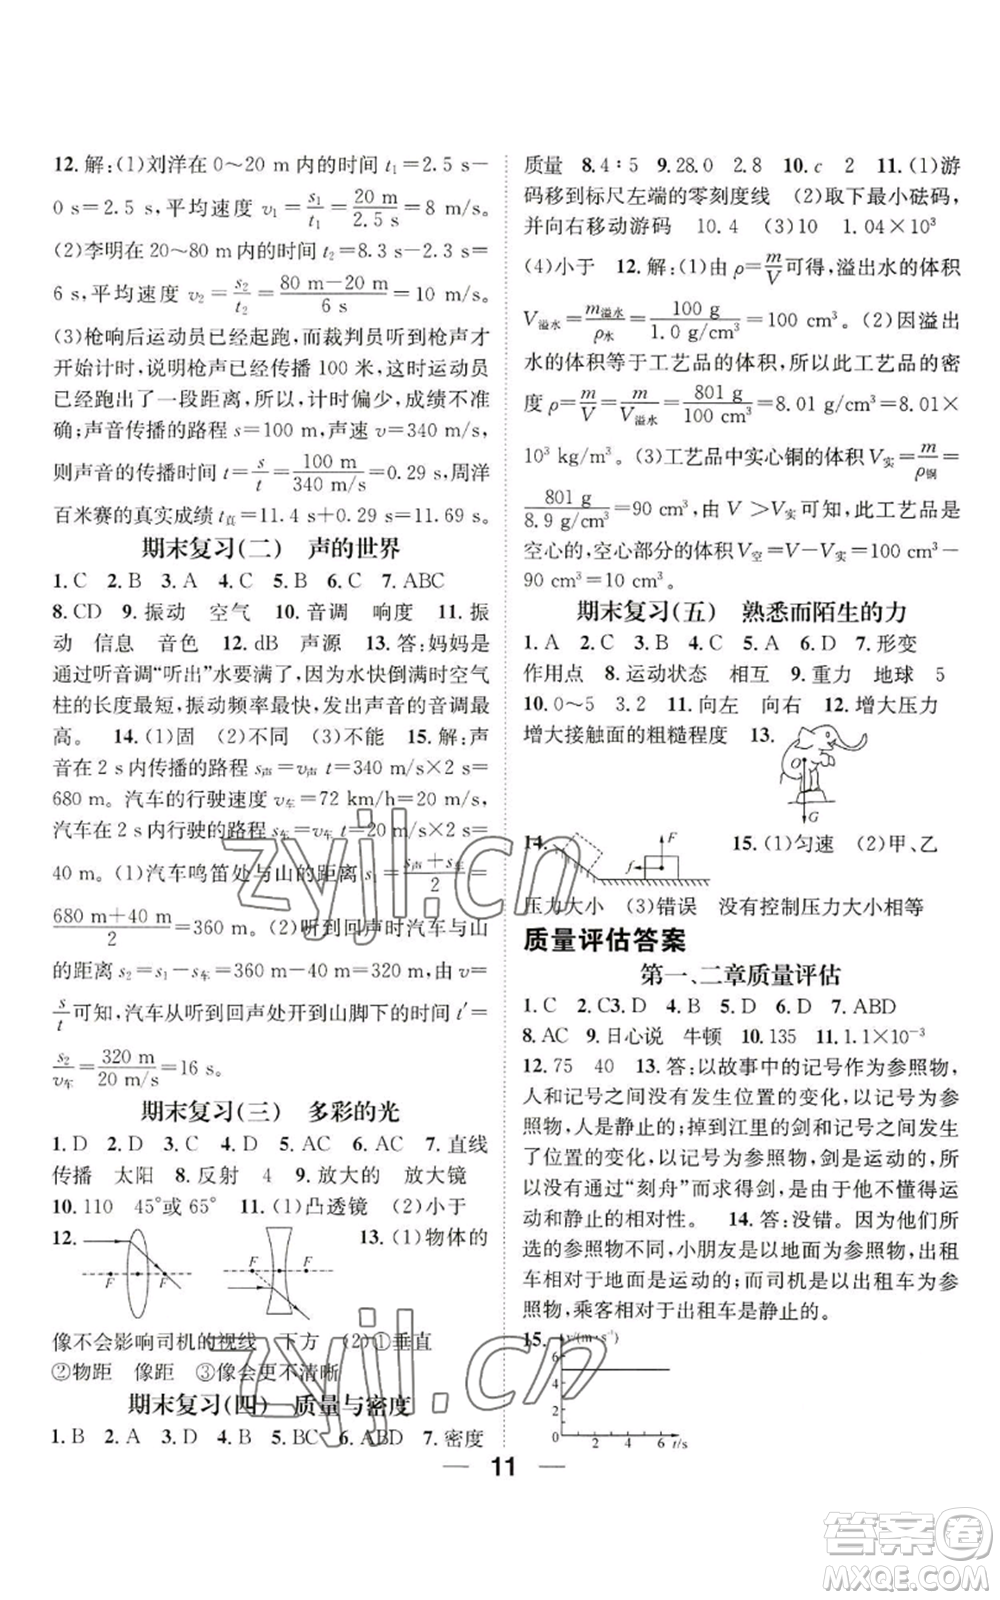 12. 解：(1)刘洋在 0～20 m 内的时间 t₁=2.5 s-
0 s=2.5 s，平均速度 v₁=s₁/t₁=20 m/2.5 s=8 m/s。
(2)李明在 20～80 m 内的时间 t₂=8.3 s-2.3 s=
6 s，平均速度 v₂=s₂/t₂=80 m-20 m/6 s=10 m/s。
(3)枪响后运动员已经起跑，而裁判员听到枪声才
开始计时，说明枪声已经传播 100 米，这时运动员
已经跑出了一段距离，所以，计时偏少，成绩不准
确；声音传播的路程 s=100 m，声速 v=340 m/s，
则声音的传播时间 t=s/v=100 m/340 m/s=0.29 s，周洋
百米赛的真实成绩 t真=11.4 s+0.29 s=11.69 s。
期末复习(二)　声的世界
1. C　2. B　3. A　4. C　5. B　6. C　7. ABC
8. CD　9. 振动　空气　10. 音调　响度　11. 振
动　信息　音色　12. dB　声源　13. 答：妈妈是
通过听音调“听出”水要满了，因为水快倒满时空气
柱的长度最短，振动频率最快，发出声音的音调最
高。　14. (1)固　(2)不同　(3)不能　15. 解：声
音在 2 s 内传播的路程 s声=v声 t=340 m/s×2 s=
680 m。汽车的行驶速度 v车=72 km/h=20 m/s，
汽车在 2 s 内行驶的路程 s车=v车 t=20 m/s×2 s=
40 m。(1)汽车鸣笛处与山的距离 s₁=s声+s车/2=
680 m+40 m/2=360 m。(2)听到回声时汽车与山
的距离 s₂=s₁-s车=360 m-40 m=320 m，由 v=
s/t可知，汽车从听到回声处开到山脚下的时间 t′=
s₂/v车=320 m/20 m/s=16 s。
期末复习(三)　多彩的光
1. D　2. D　3. A　4. B　5. AC　6. AC　7. 直线
传播　太阳　8. 反射　4　9. 放大的　放大镜
10. 110　45°或 65°　11. (1)凸透镜　(2)小于
12.　13. (1)物体的
F　F　F　F
像不会影响司机的视线　下方　(2)①垂直
②物距　像距　③像会更不清晰
期末复习(四)　质量与密度
1. B　2. A　3. D　4. C　5. BC　6. ABD　7. 密度
质量　8. 4∶5　9. 28.0　2.8　10. c　2　11. (1)游
码移到标尺左端的零刻度线　(2)取下最小砝码，
并向右移动游码　10.4　(3)10　1.04×10³
(4)小于　12. 解：(1)由 ρ=m/V可得，溢出水的体积
V溢水=m溢水/ρ水=100 g/1.0 g/cm³=100 cm³。(2)因溢出
水的体积等于工艺品的体积，所以此工艺品的密
度 ρ=m/V=m/V溢水=801 g/100 cm³=8.01 g/cm³=8.01×
10³ kg/m³。(3)工艺品中实心铜的体积 V实=m/ρ铜=
801 g/8.9 g/cm³=90 cm³，由 V＞V实可知，此工艺品是
空心的，空心部分的体积 V空=V-V实=100 cm³-
90 cm³=10 cm³。
期末复习(五)　熟悉而陌生的力
1. A　2. C　3. B　4. C　5. A　6. D　7. 形变
作用点　8. 运动状态　相互　9. 重力　地球　5
10. 0～5　3.2　11. 向左　向右　12. 增大压力
增大接触面的粗糙程度　13.
G
14.　f　F　15. (1)匀速　(2)甲、乙
压力大小　(3)错误　没有控制压力大小相等
质量评估答案
第一、二章质量评估
1. C　2. C　3. D　4. B　5. D　6. D　7. ABD
8. AC　9. 日心说　牛顿　10. 135　11. 1.1×10⁻³
12. 75　40　13. 答：以故事中的记号作为参照物，
人和记号之间没有发生位置的变化，以记号为参
照物，人是静止的；掉到江里的剑和记号之间发生
了位置的变化，以记号为参照物，剑是运动的，所
以没有通过“刻舟”而求得剑，是由于他不懂得运
动和静止的相对性。　14. 答：没错。因为他们所
选的参照物不同，小朋友是以地面为参照物，出租
车相对于地面是运动的；而司机是以出租车为参
照物，乘客相对于出租车是静止的。
15. v/(m·s⁻¹)
6
4
2
0　2　4　6　t/s
11
zyjl.cn
zyjl.cn
答案圈
MXQE.COM